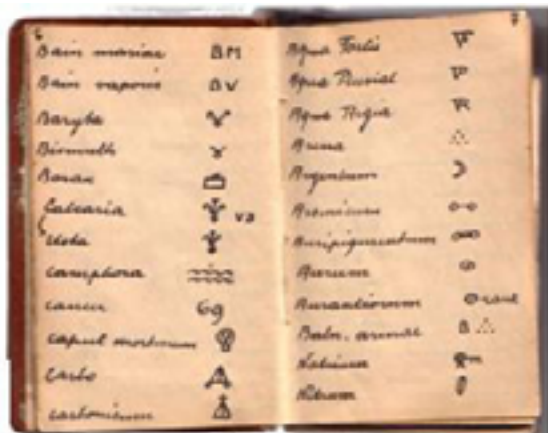 6
Bain mariae BM
Bain vaporis BV
Baryta
Bismuth
Borax
Calcaria
Usta
Camphora
Cancer 69
Caput mortuum
Carbo
Carbonicum
7
Aqua Fortis
Aqua Pluvial
Aqua Regia
Arena
Argentum
Arsenicum
Auripigmentum
Aurum
Aurantiorum
Baln. arenae B
Natrium
Nitrum